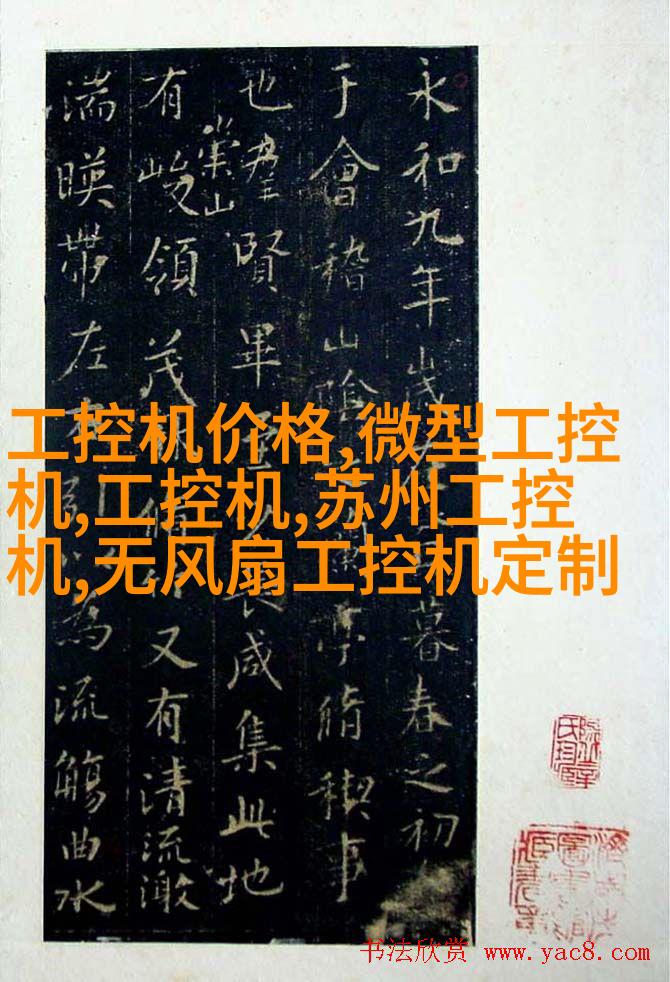 永和九年歲暮春之初
于會稽山陰亭脩稧事
也羣賢畢咸集此地
有崇山峻領茂又有清流激
湍暎帶左為流觴曲水
工控机价格,微型工控
机,工控机,苏州工控
机,无风扇工控机定制
书法欣赏 www.yac8.com